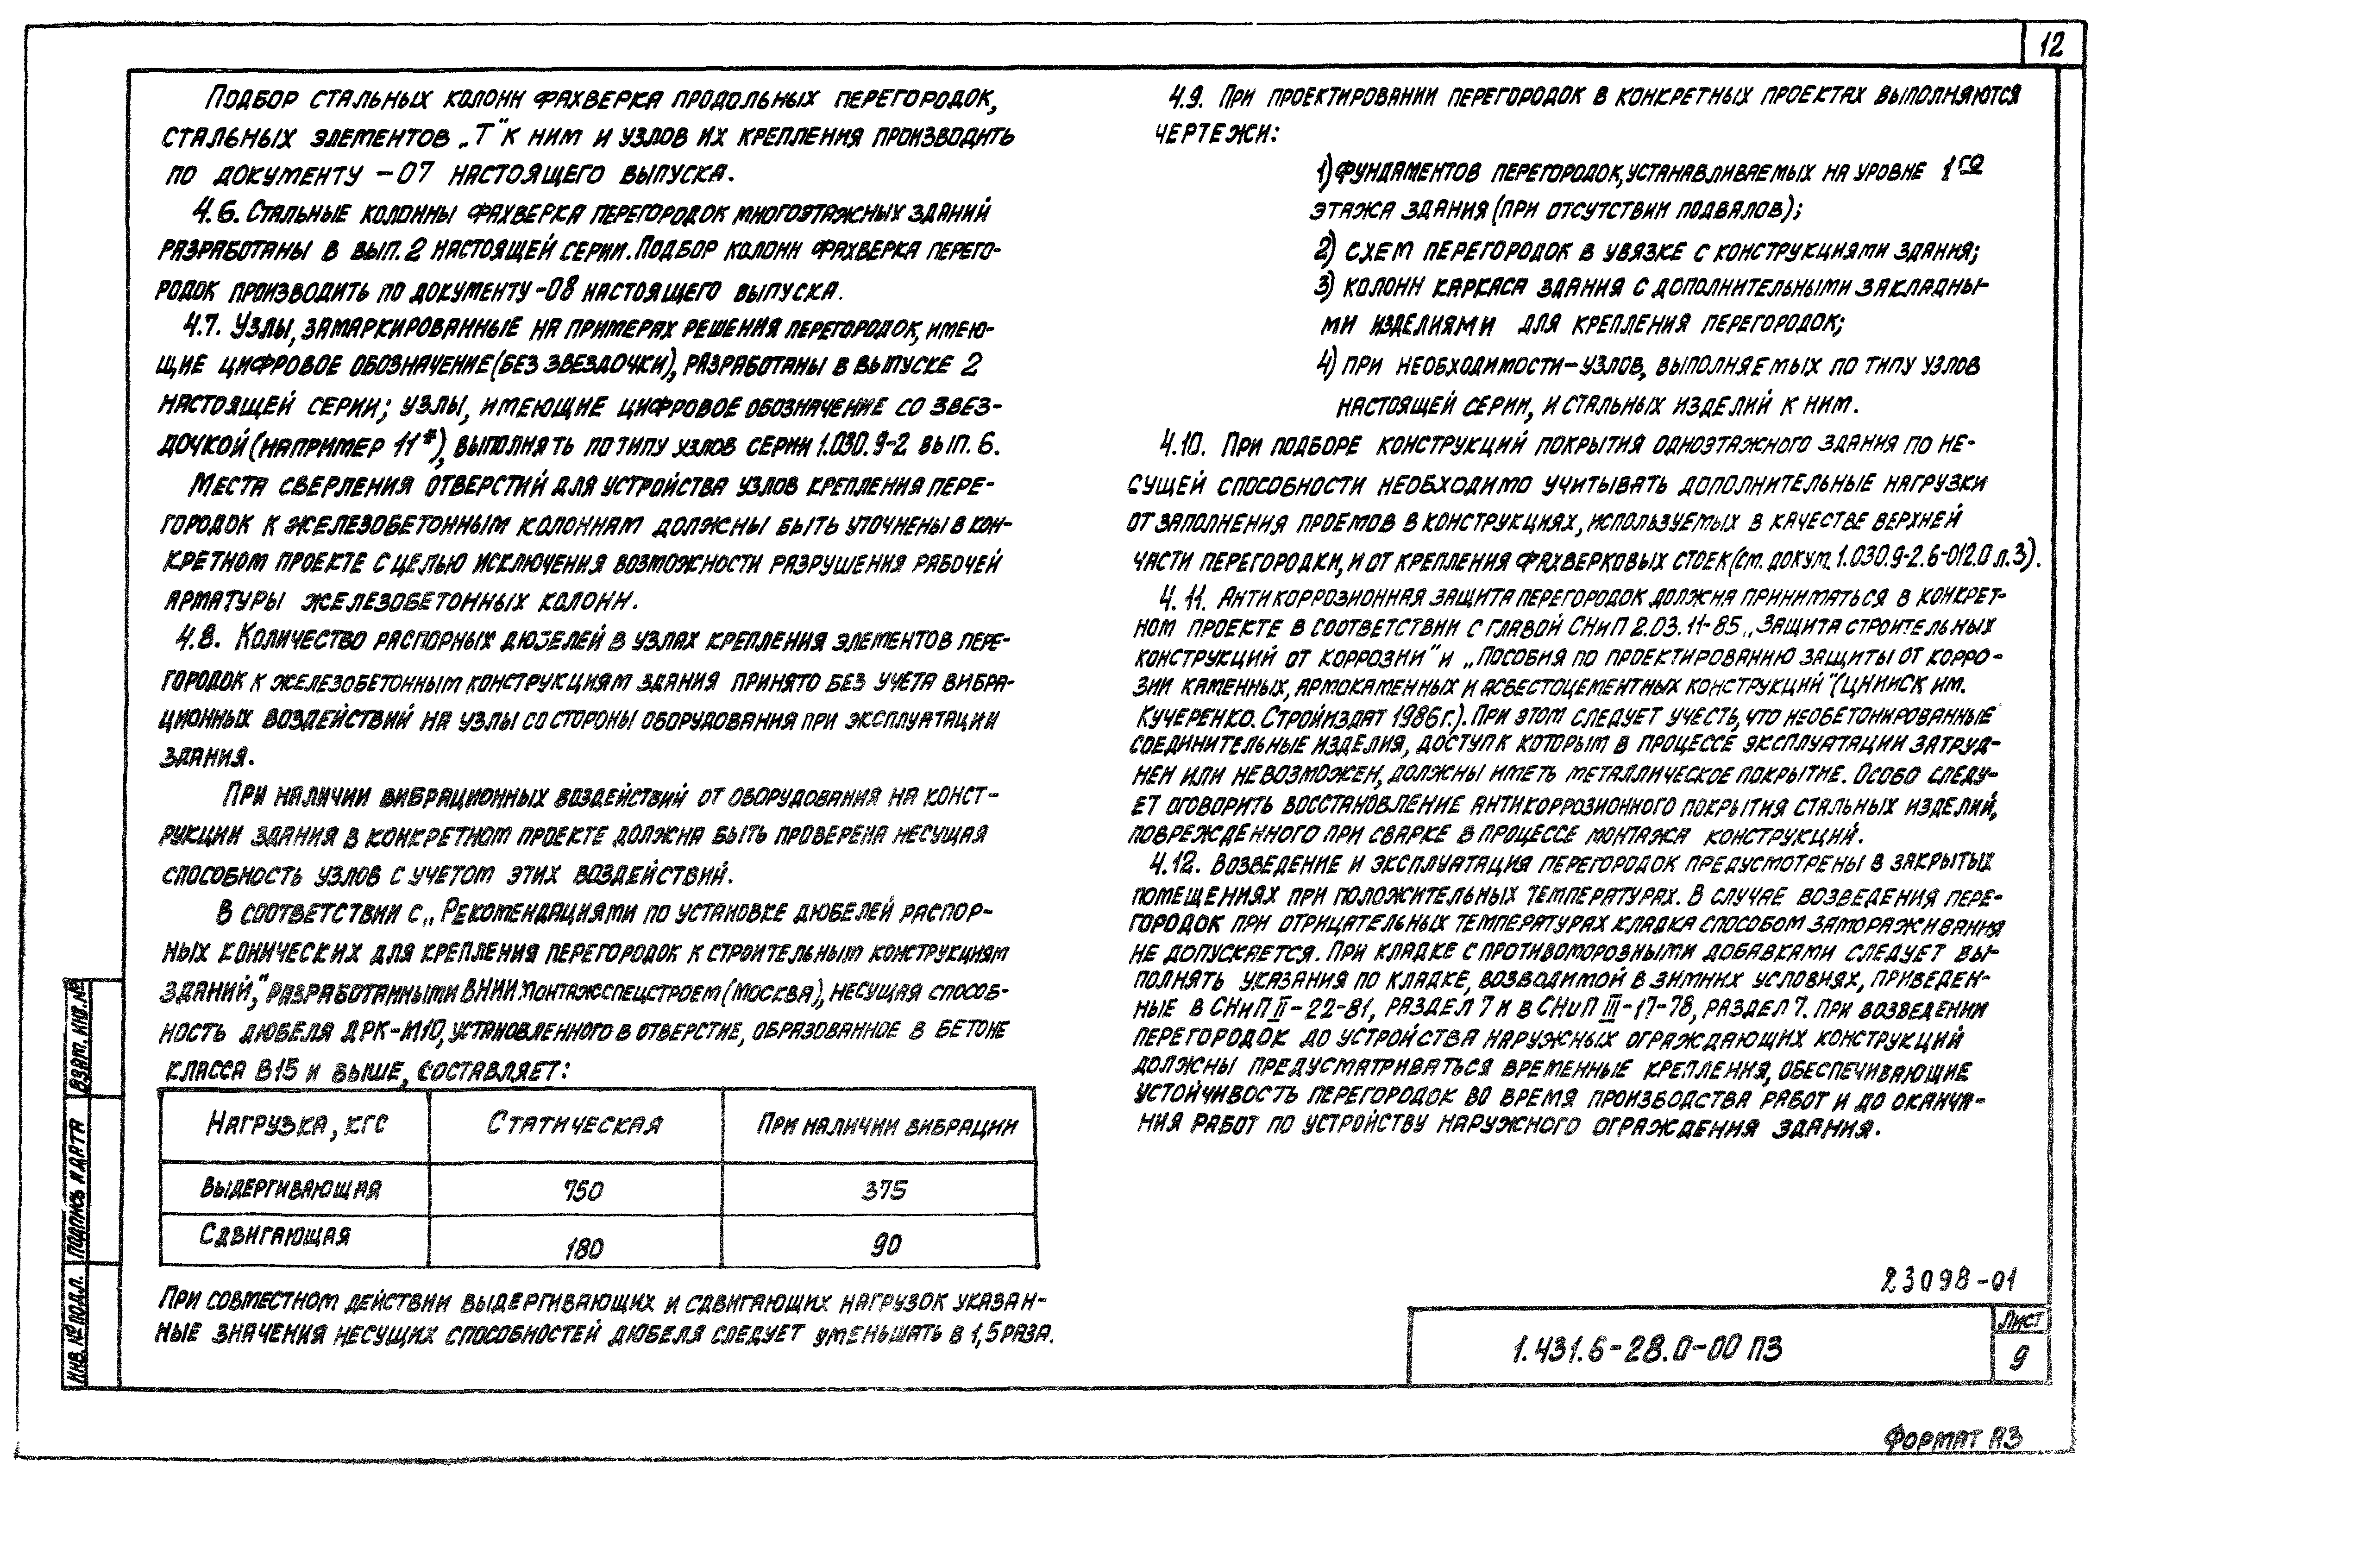 12
Подбор стальных колонн фахверка продольных перегородок,
стальных элементов „Т" к ним и узлов их крепления производить
по документу -07 настоящего выпуска.
4.6. Стальные колонны фахверка перегородок многоэтажных зданий
разработаны в вып. 2 настоящей серии. Подбор колонн фахверка перего-
родок производить по документу -08 настоящего выпуска.
4.7. Узлы, замаркированные на примерах решения перегородок, имею-
щие цифровое обозначение (без звездочки), разработаны в выпуске 2
настоящей серии; узлы, имеющие цифровое обозначение со звез-
дочкой (например 11*), выполнять по типу узлов серии 1.030.9-2 вып. 6.
Места сверления отверстий для устройства узлов крепления пере-
городок к железобетонным колоннам должны быть уточнены в кон-
кретном проекте с целью исключения возможности разрушения рабочей
арматуры железобетонных колонн.
4.8. Количество распорных дюбелей в узлах крепления элементов пере-
городок к железобетонным конструкциям здания принято без учета вибра-
ционных воздействий на узлы со стороны оборудования при эксплуатации
здания.
При наличии вибрационных воздействий от оборудования на конст-
рукции здания в конкретном проекте должна быть проверена несущая
способность узлов с учетом этих воздействий.
В соответствии с „Рекомендациями по установке дюбелей распор-
ных конических для крепления перегородок к строительным конструкциям
зданий," разработанными ВНИИмонтажспецстроем (Москва), несущая способ-
ность дюбеля ДРК-М10, установленного в отверстие, образованное в бетоне
класса В15 и выше, составляет:
Нагрузка, кгс Статическая При наличии вибрации
Выдергивающая 750 375
Сдвигающая 180 90
При совместном действии выдергивающих и сдвигающих нагрузок указан-
ные значения несущих способностей дюбеля следует уменьшать в 1,5 раза.
4.9. При проектировании перегородок в конкретных проектах выполняются
чертежи:
1) фундаментов перегородок, устанавливаемых на уровне 1го
этажа здания (при отсутствии подвалов);
2) схем перегородок в увязке с конструкциями здания;
3) колонн каркаса здания с дополнительными закладны-
ми изделиями для крепления перегородок;
4) при необходимости-узлов, выполняемых по типу узлов
настоящей серии, и стальных изделий к ним.
4.10. При подборе конструкций покрытия одноэтажного здания по не-
сущей способности необходимо учитывать дополнительные нагрузки
от заполнения проемов в конструкциях, используемых в качестве верхней
части перегородки, и от крепления фахверковых стоек (см. докум. 1.030.9-2.6-012.0 л.3).
4.11. Антикоррозионная защита перегородок должна приниматься в конкрет-
ном проекте в соответствии с главой СНиП 2.03.11-85 „Защита строительных
конструкций от коррозии" и „Пособия по проектированию защиты от корро-
зии каменных, армокаменных и асбестоцементных конструкций" (ЦНИИСК им.
Кучеренко. Стройиздат 1986г.). При этом следует учесть, что необетонированные
соединительные изделия, доступ к которым в процессе эксплуатации затруд-
нен или невозможен, должны иметь металлическое покрытие. Особо следу-
ет оговорить восстановление антикоррозионного покрытия стальных изделий,
поврежденного при сварке в процессе монтажа конструкций.
4.12. Возведение и эксплуатация перегородок предусмотрены в закрытых
помещениях при положительных температурах. В случае возведения пере-
городок при отрицательных температурах кладка способом замораживания
не допускается. При кладке с противоморозными добавками следует вы-
полнять указания по кладке, возводимой в зимних условиях, приведен-
ные в СНиП II-22-81, раздел 7 и в СНиП III-17-78, раздел 7. При возведении
перегородок до устройства наружных ограждающих конструкций
должны предусматриваться временные крепления, обеспечивающие
устойчивость перегородок во время производства работ и до оконча-
ния работ по устройству наружного ограждения здания.
23098-01
1.431.6-28.0-00 ПЗ
Лист
9
Формат А3
Инв. № подл. Подпись и дата Взам. инв. №